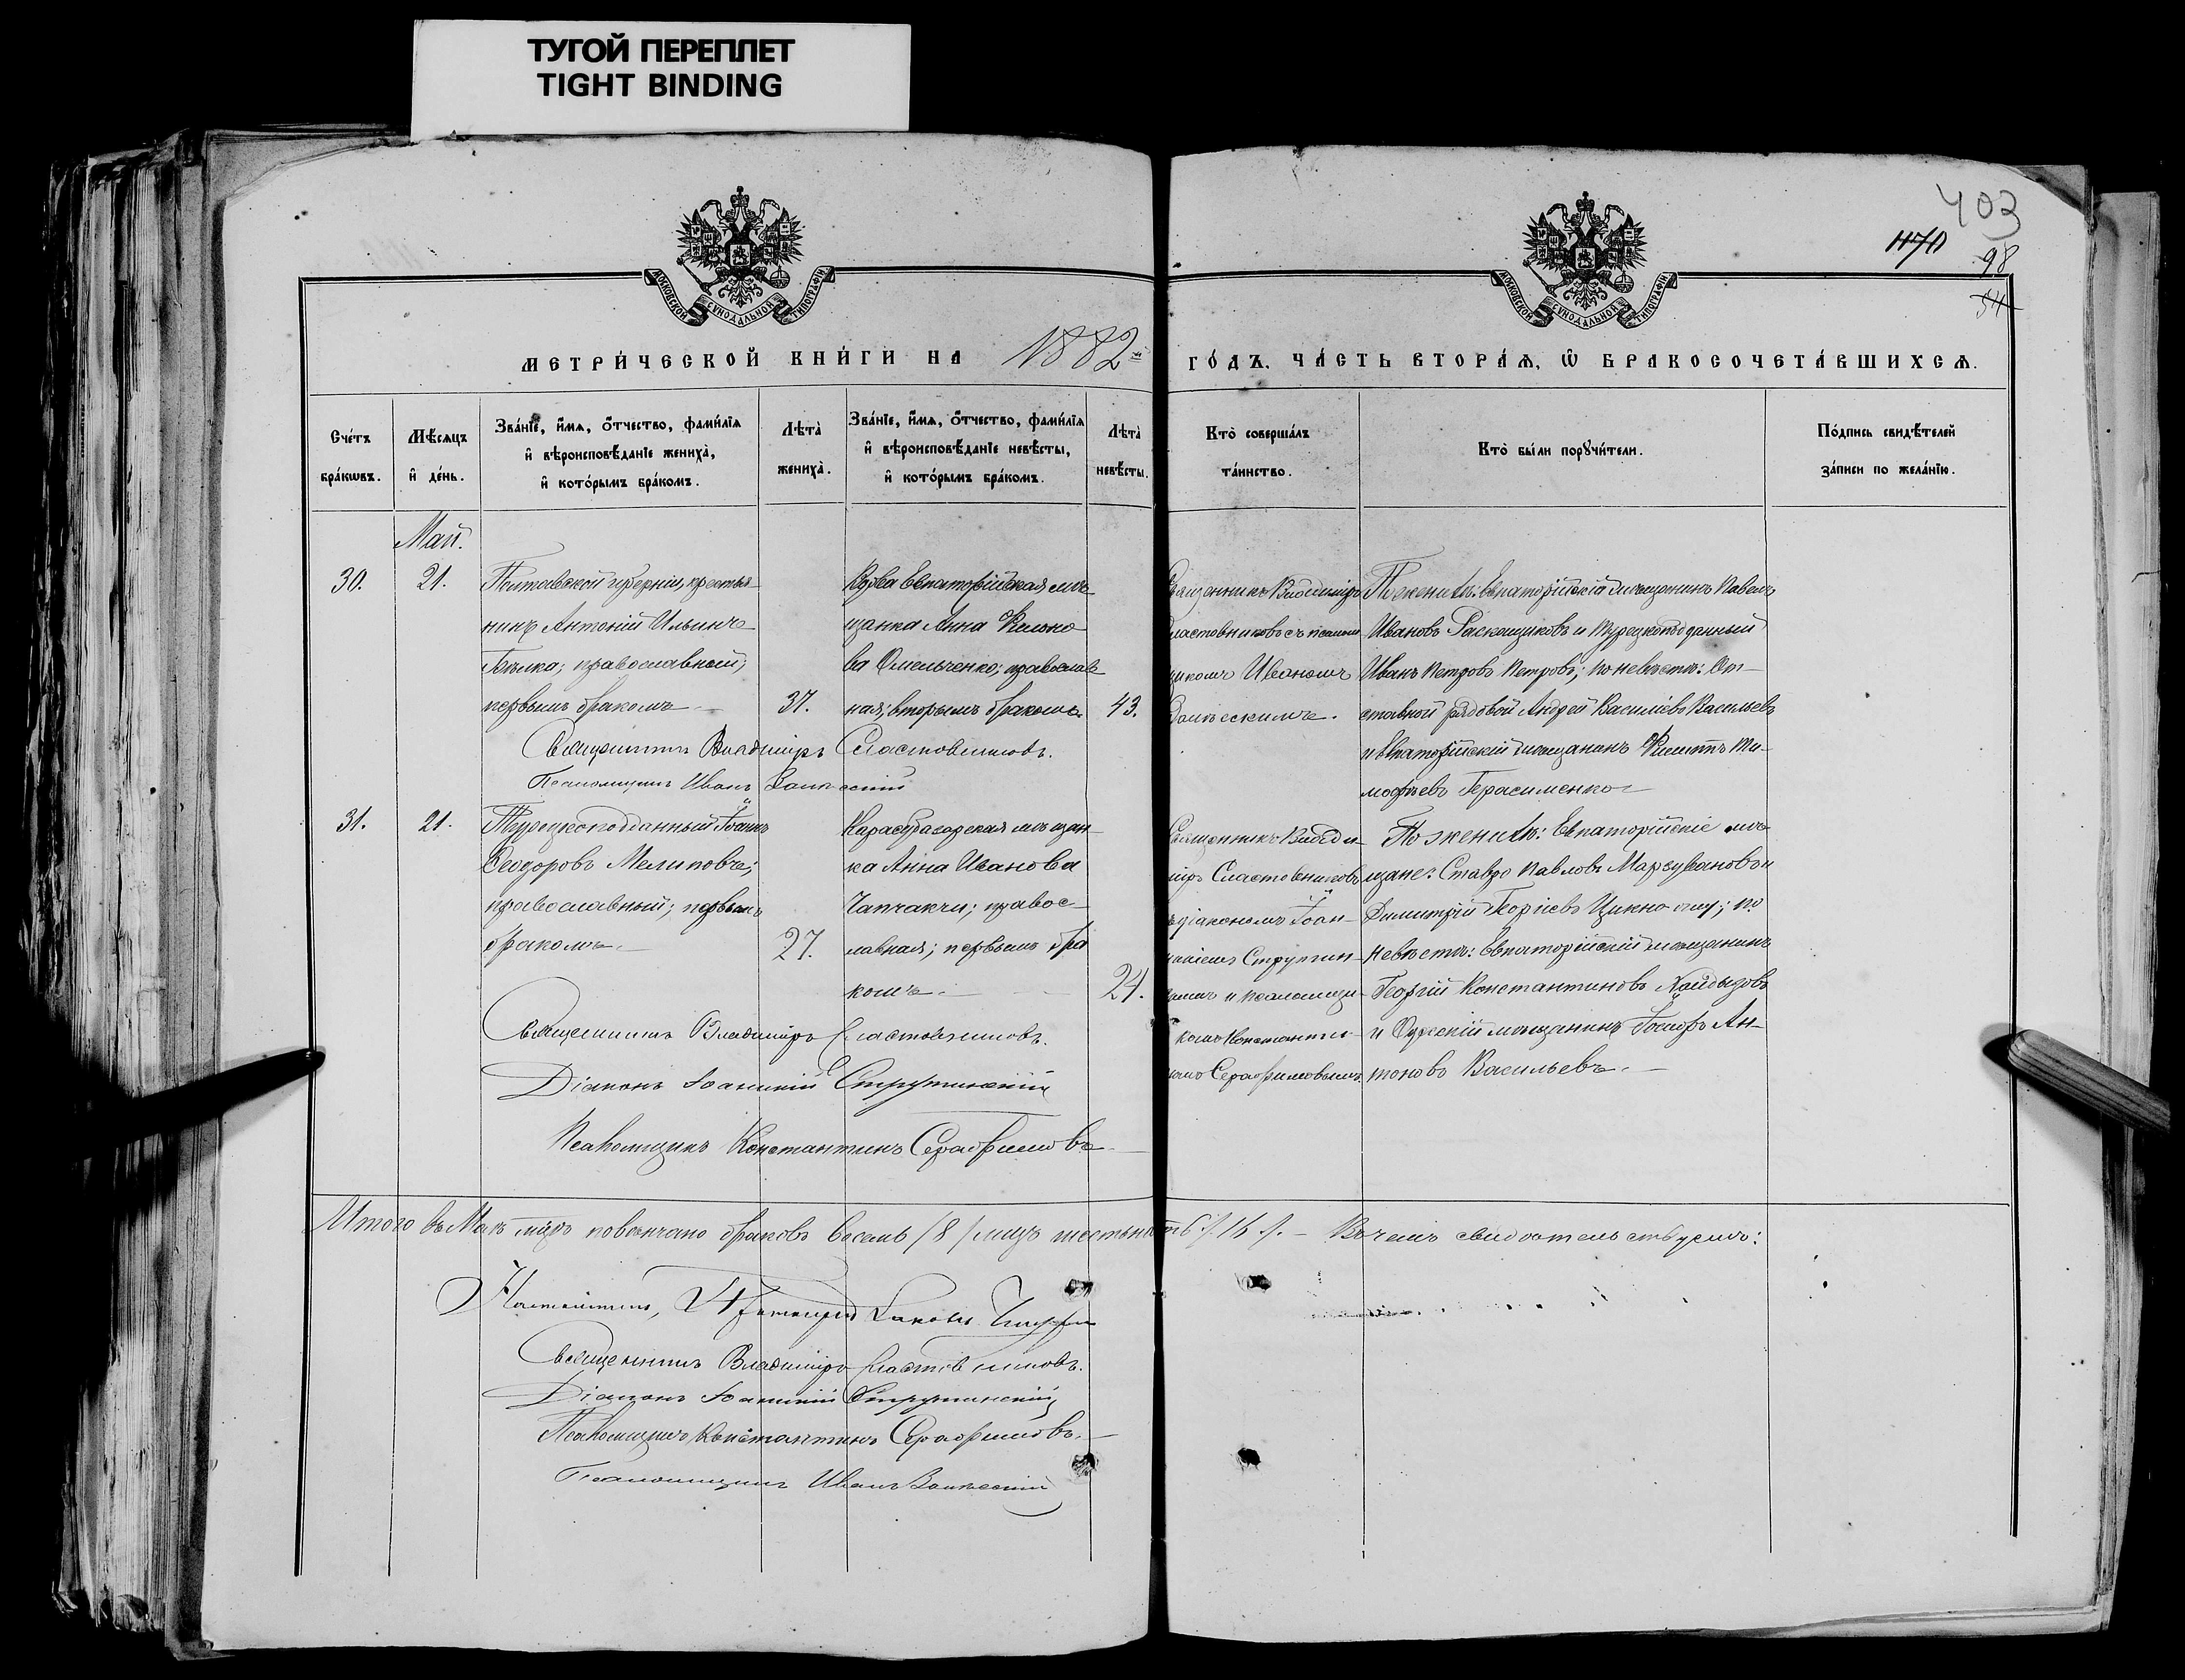 ТУГОЙ ПЕРЕПЛЕТ
TIGHT BINDING
403
98
54
МОСКОВСКОЙ СУНОДАЛЬНОЙ ТИПОГРАФІИ
МОСКОВСКОЙ СУНОДАЛЬНОЙ ТИПОГРАФІИ
МЕТРИ́ЧЕСКОЙ КНИ́ГИ НА 1882 ГО́ДЪ. ЧА́СТЬ ВТОРА́Ѧ, Ѡ БРАКОСОЧЕТА́ВШИХСѦ.
Сче́тъ бра́кѡвъ.
Мѣ́сяцъ и҆ де́нь.
Зва́нїе, и҆́мѧ, ѻ҆́тчество, фами́лїѧ и҆ вѣроисповѣ́данїе жениха̀, и҆ кото́рымъ бра́комъ.
Лѣта̀ жениха̀.
Зва́нїе, и҆́мѧ, ѻ҆́тчество, фами́лїѧ и҆ вѣроисповѣ́данїе невѣ́сты, и҆ кото́рымъ бра́комъ.
Лѣта̀ невѣ́сты.
Кто̀ соверша́лъ та́инство.
Кто̀ бы́ли порꙋчи́тели.
По́дпись свидѣ́телей за́писи по жела́нїю.
Май.
30.
21.
Полтавской губерніи, крестья-
нинъ Антоній Ильинъ
православный,
первымъ бракомъ
37.
Вдова Евпаторійская мѣ-
щанка Анна
ва Омельченко; православ
ная; вторымъ бракомъ
43.
Священникъ Владиміръ
Сластовниковъ съ псалом
щикомъ Иваномъ
По женихѣ: Евпаторійскій мѣщанинъ Павелъ
Ивановъ Раскащиковъ и Турецкоподданный
Иванъ Петровъ Петровъ; по невѣстѣ: От-
ставной рядовой Андрей Василіевъ Васильевъ
и Евпаторійскій мѣщанинъ Филиппъ Ти-
мофѣевъ Герасименко
Священникъ Владиміръ Сластовниковъ.
Псаломщикъ Иванъ
31.
21.
Турецкоподданный Іоаннъ
Ѳеодоровъ Мелиповъ;
православный; первымъ
бракомъ
27.
Карасубазарская мѣщан-
ка Анна Иванова
Чапчакчи; правос-
лавная; первымъ бра
комъ
24.
Священникъ Влади-
міръ Сластовниковъ
съ діакономъ Іоан-
никіемъ Струтин-
скимъ и псаломщи-
комъ Константи-
номъ Серафимовымъ
По женихѣ: Евпаторійскіе мѣ-
щане: Ставро Павловъ Марзувановъ и
Димитрій Георгіевъ; по
невѣстѣ: Евпаторійскій мѣщанинъ
Георгій Константиновъ
и Одесскій мѣщанинъ Ан-
тоновъ Васильевъ.
Священникъ Владиміръ Сластовниковъ.
Діаконъ Іоанникій Струтинскій
Псаломщикъ Константинъ Серафимовъ
Итого въ Маѣ мцѣ повѣнчано браковъ восемь /8/ лицъ шестнадцать /16/. – Въ чемъ свидѣтельствуемъ:
Священникъ Владиміръ Сластовниковъ.
Діаконъ Іоанникій Струтинскій
Псаломщикъ Константинъ Серафимовъ.
Псаломщикъ Иванъ